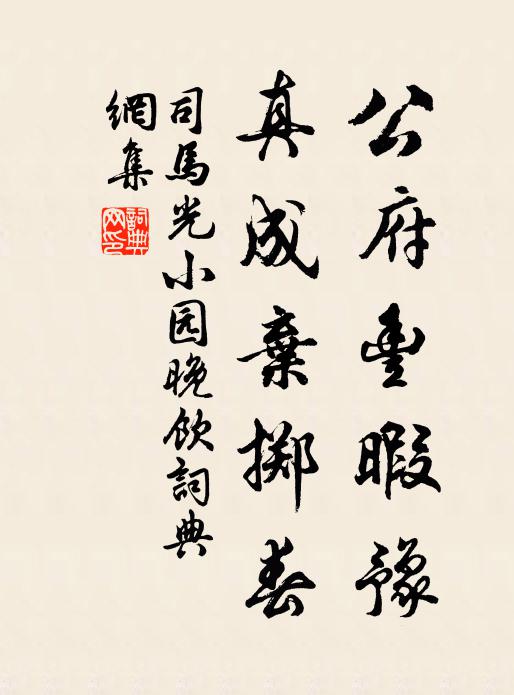 公府豊暇豫
真成棄擲春
司馬光小园晚飲詞典
網集
詞典
网印